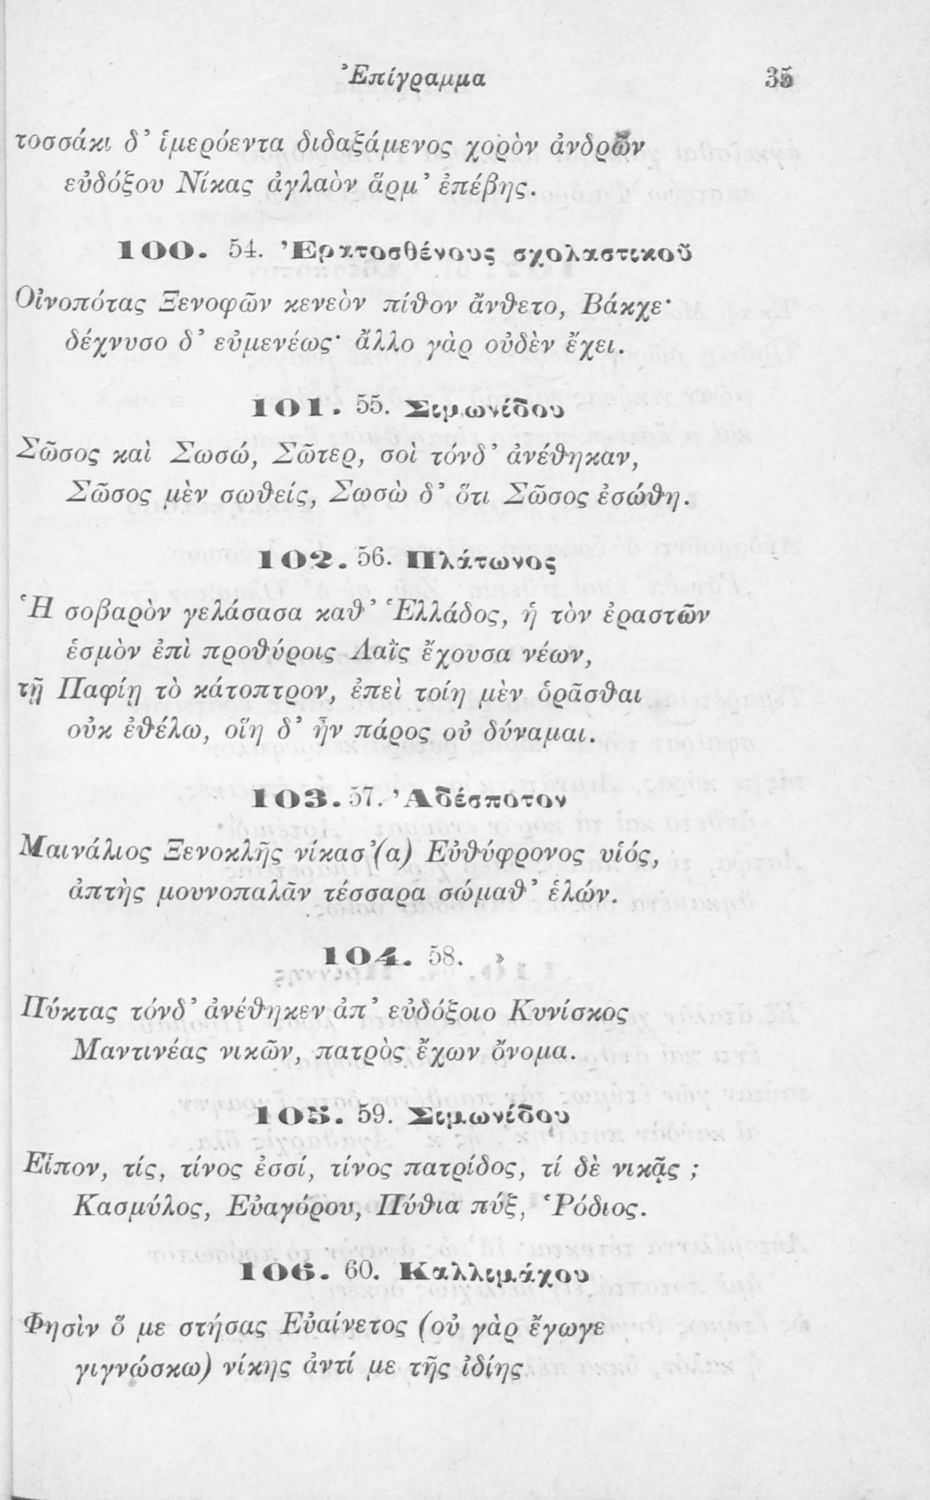 Ἐπίγραμμα 35
τοσσάκι δ’ ἱμερόεντα διδαξάμενος χορὸν ἀνδρῶν
εὐδόξου Νίκας ἀγλαὸν ἅρμ’ ἐπέβης.
100. 54. Ἐρατοσθένους σχολαστικοῦ
Οἰνοπότας Ξενοφῶν κενεὸν πίθον ἄνθετο, Βάκχε·
δέχνυσο δ’ εὐμενέως· ἄλλο γὰρ οὐδὲν ἔχει.
101. 55. Σιμωνίδου
Σῶσος καὶ Σωσώ, Σῶτερ, σοὶ τόνδ’ ἀνέθηκαν,
Σῶσος μὲν σωθείς, Σωσὼ δ’ ὅτι Σῶσος ἐσώθη.
102. 56. Πλάτωνος
Ἡ σοβαρὸν γελάσασα καθ’ Ἑλλάδος, ἡ τὸν ἐραστῶν
ἑσμὸν ἐπὶ προθύροις Λαῒς ἔχουσα νέων,
τῇ Παφίῃ τὸ κάτοπτρον, ἐπεὶ τοίη μὲν ὁρᾶσθαι
οὐκ ἐθέλω, οἵη δ’ ἦν πάρος οὐ δύναμαι.
103. 57. Ἀδέσποτον
Μαινάλιος Ξενοκλῆς νίκασ’(α) Εὐθύφρονος υἱός,
ἀπτὴς μουνοπαλᾶν τέσσαρα σώμαθ’ ἑλών.
104. 58. »
Πύκτας τόνδ’ ἀνέθηκεν ἀπ’ εὐδόξοιο Κυνίσκος
Μαντινέας νικῶν, πατρὸς ἔχων ὄνομα.
105. 59. Σιμωνίδου
Εἶπον, τίς, τίνος ἐσσί, τίνος πατρίδος, τί δὲ νικᾷς ;
Κασμύλος, Εὐαγόρου, Πύθια πύξ, Ῥόδιος.
106. 60. Καλλιμάχου
Φησὶν ὅ με στήσας Εὐαίνετος (οὐ γὰρ ἔγωγε
γιγνώσκω) νίκης ἀντί με τῆς ἰδίης